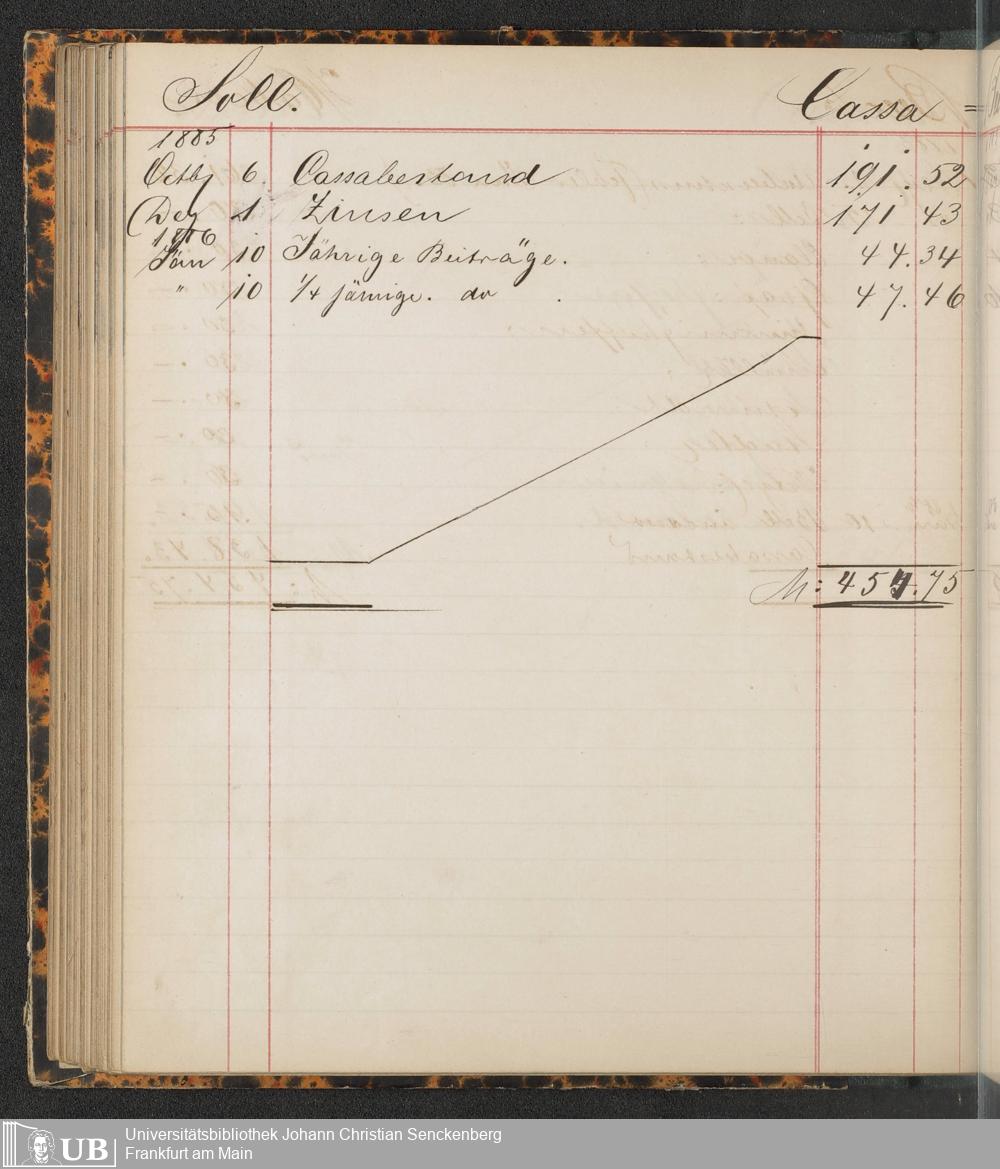 Soll. Cassa =
1885
Octbr 6. Cassabestand 191. 52
Dez 1 Zinsen 171 43
1886
Jän 10 Jährige Beiträge. 44. 34
" 10 1/4 jährige. do . 47. 46
M: 454.75
UB Universitätsbibliothek Johann Christian Senckenberg
Frankfurt am Main